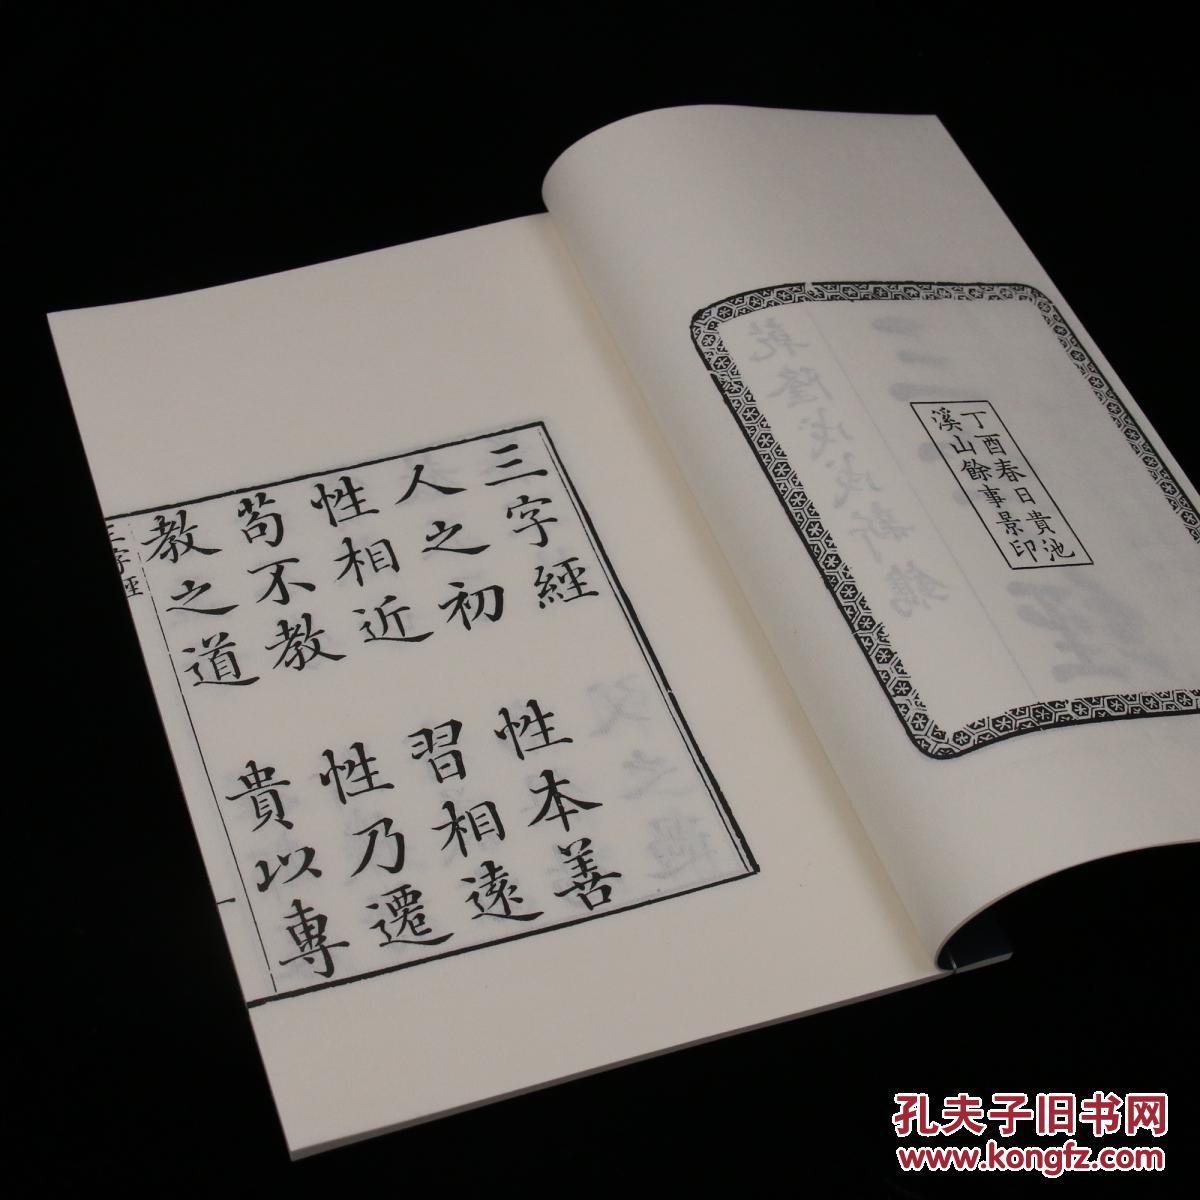 丁酉春日貴池
溪山餘事景印
三字經
人之初 性本善
性相近 習相遠
苟不教 性乃遷
教之道 貴以專
三字經
一
孔夫子旧书网
www.kongfz.com